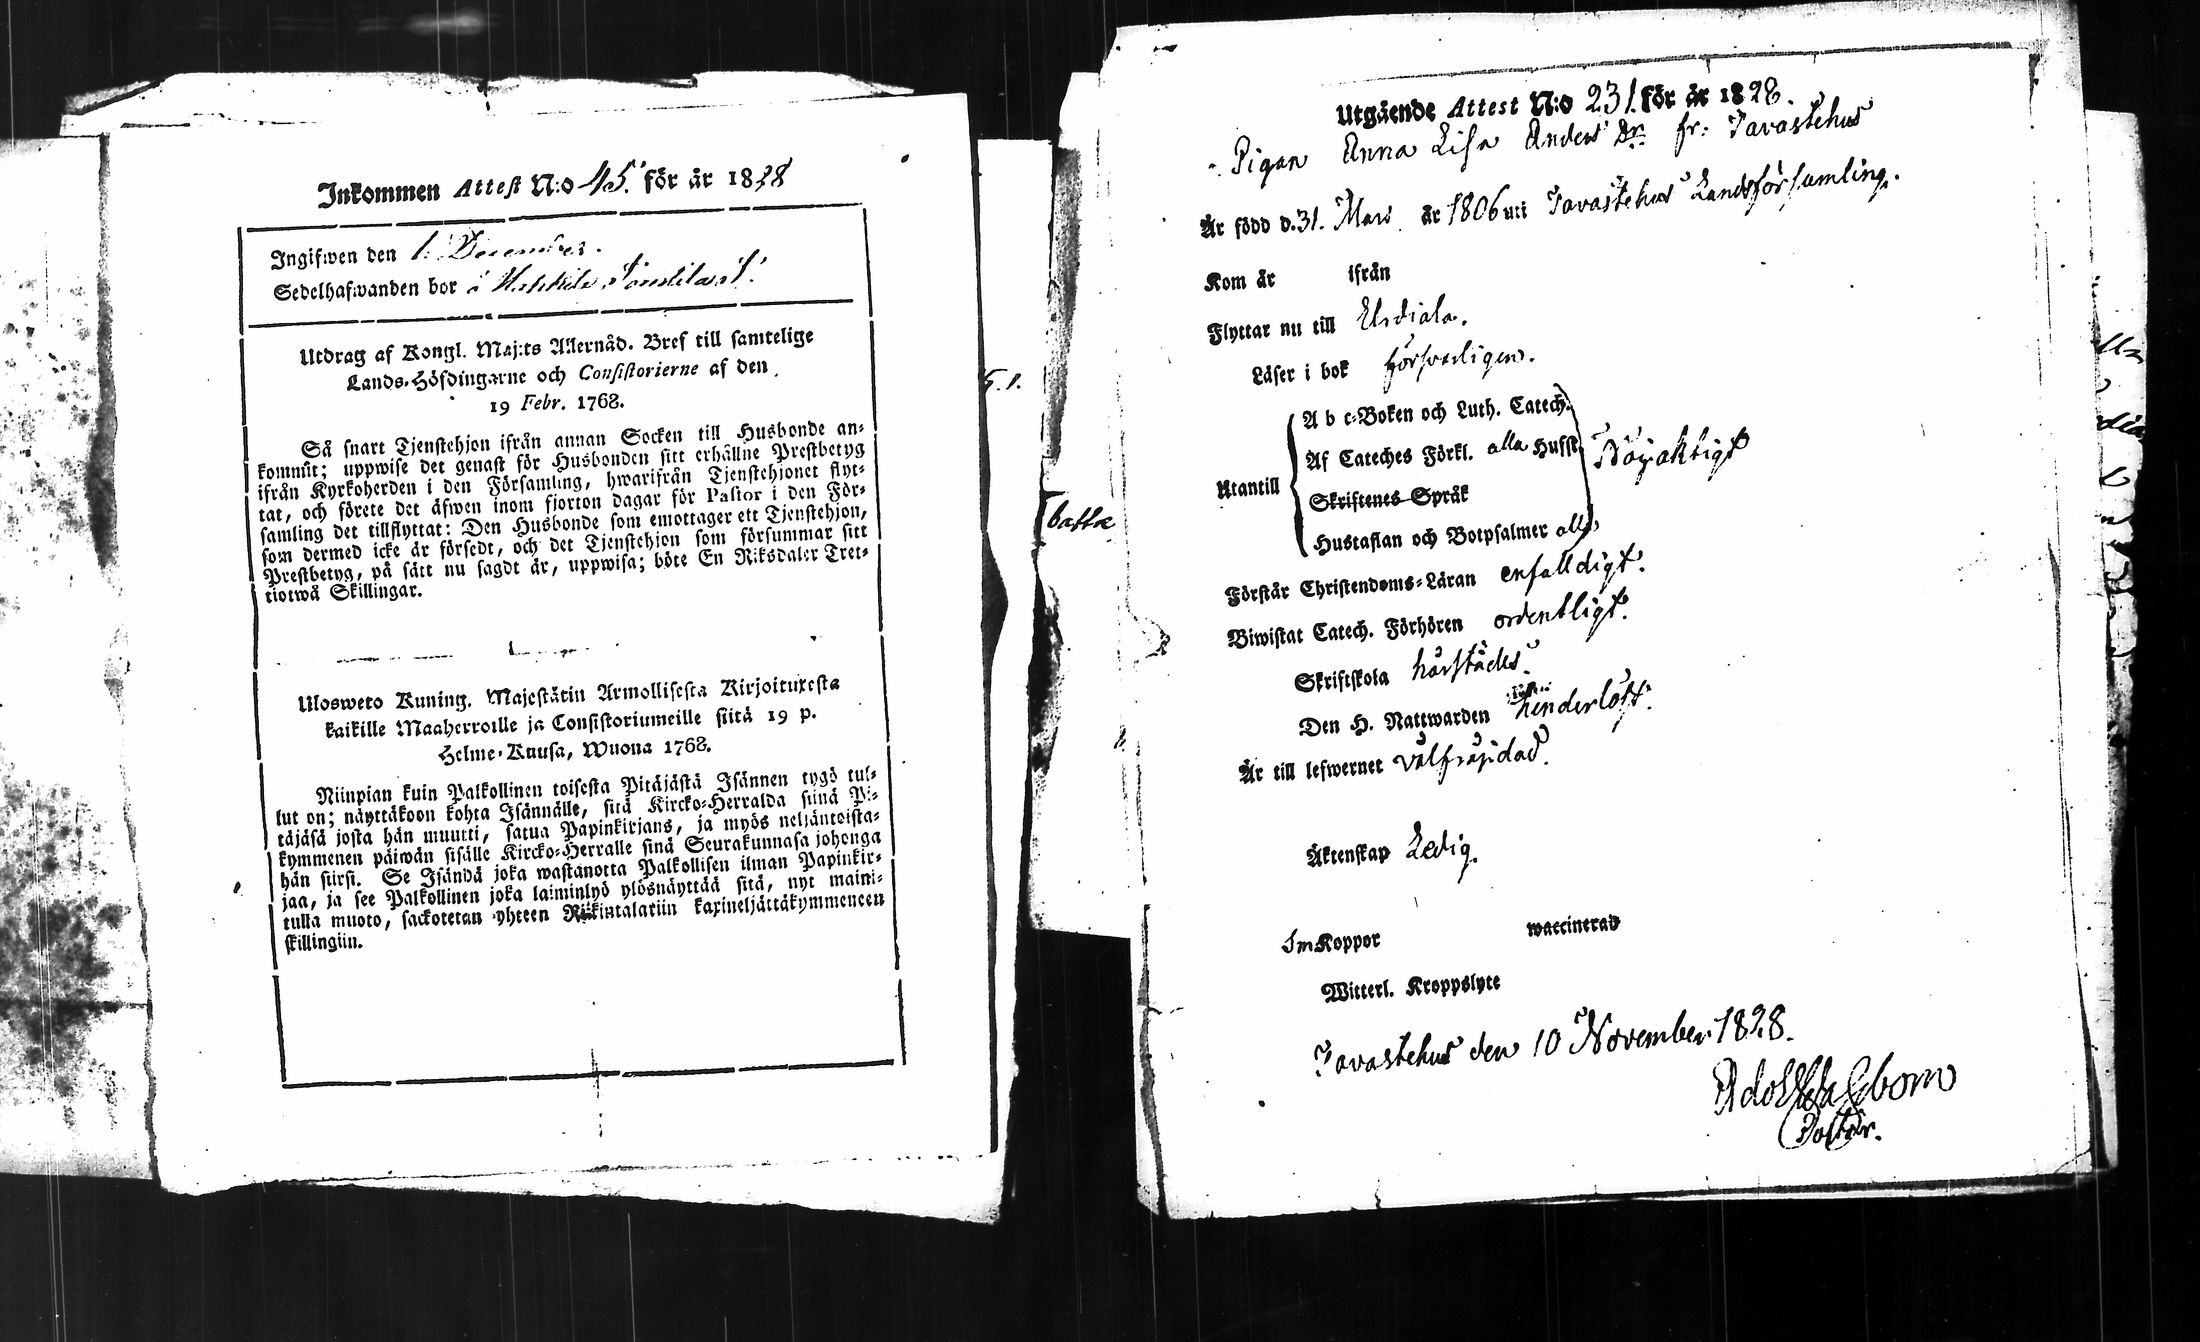 Inkommen Attest N:o 45. för år 1828
Ingifwen den 1. December.
Sedelhafwanden bor å
Utdrag af Kongl. Maj:ts Allernåd. Bref till samtelige
Lands-Höfdingarne och Consistorierne af den
19 Febr. 1768.
Så snart Tjenstehjon ifrån annan Socken till Husbonde an-
kommit; uppwise det genast för Husbonden sitt erhållne Prestbetyg
ifrån Kyrkoherden i den Församling, hwarifrån Tjenstehjonet flyt-
tat, och förete det äfwen inom fjorton dagar för Pastor i den För-
samling det tillflyttat: Den Husbonde som emottager ett Tjenstehjon,
som dermed icke är försedt, och det Tjenstehjon som försummar sitt
Prestbetyg, på sätt nu sagdt är, uppwisa; böte En Riksdaler Tret-
tiotwå Skillingar.
Ulosweto Kuning. Majestätin Armollisesta Kirjoituxesta
kaikille Maaherroille ja Consistoriumeille siitä 19 p.
Helme-Kuusa, Wuona 1768.
Niinpian kuin Palkollinen toisesta Pitäjästä Isännen tygö tul-
lut on; näyttäkoon kohta Isännälle, sitä Kircko-Herralda siinä Pi-
täjäsä josta hän muutti, satua Papinkirjans, ja myös neljäntoista-
kymmenen päiwän sisälle Kircko-Herralle sinä Seurakunnasa johonga
hän siirsi. Se Isändä joka wastanotta Palkollisen ilman Papinkir-
jaa, ja see Palkollinen joka laiminlyö ylösnäyttää sitä, nyt maini-
tulla muoto, sackotetan yhteen Riikintalariin kaxineljättäkymmeneen
skillingiin.
5.1.
Utgående Attest N:o 231. för år 1828.
Pigan Anna Lisa Anders Dr. fr: Tavastehus
Är född d. 31. Mars år 1806 uti Tavastehus Landsförsamling.
Kom år ifrån
Flyttar nu till
Läser i bok försvarligen.
A b c-Boken och Luth. Catech.
Af Cateches Förkl. alla Husst. Nöjaktigt
Utantill
Skriftenes Språk
Hustaflan och Botpsalmer alla
Förstår Christendoms-Läran enfalldigt.
Biwistat Catech. Förhören ordentligt.
Skriftskola härstädes.
Den H. Nattwarden hinderlöst.
Är till lefwernet välfräjdad.
Äktenskap Ledig.
Sm Koppor waccinerad
Witterl. Kroppslyte
Tavastehus den 10 November 1828.
Pastor.